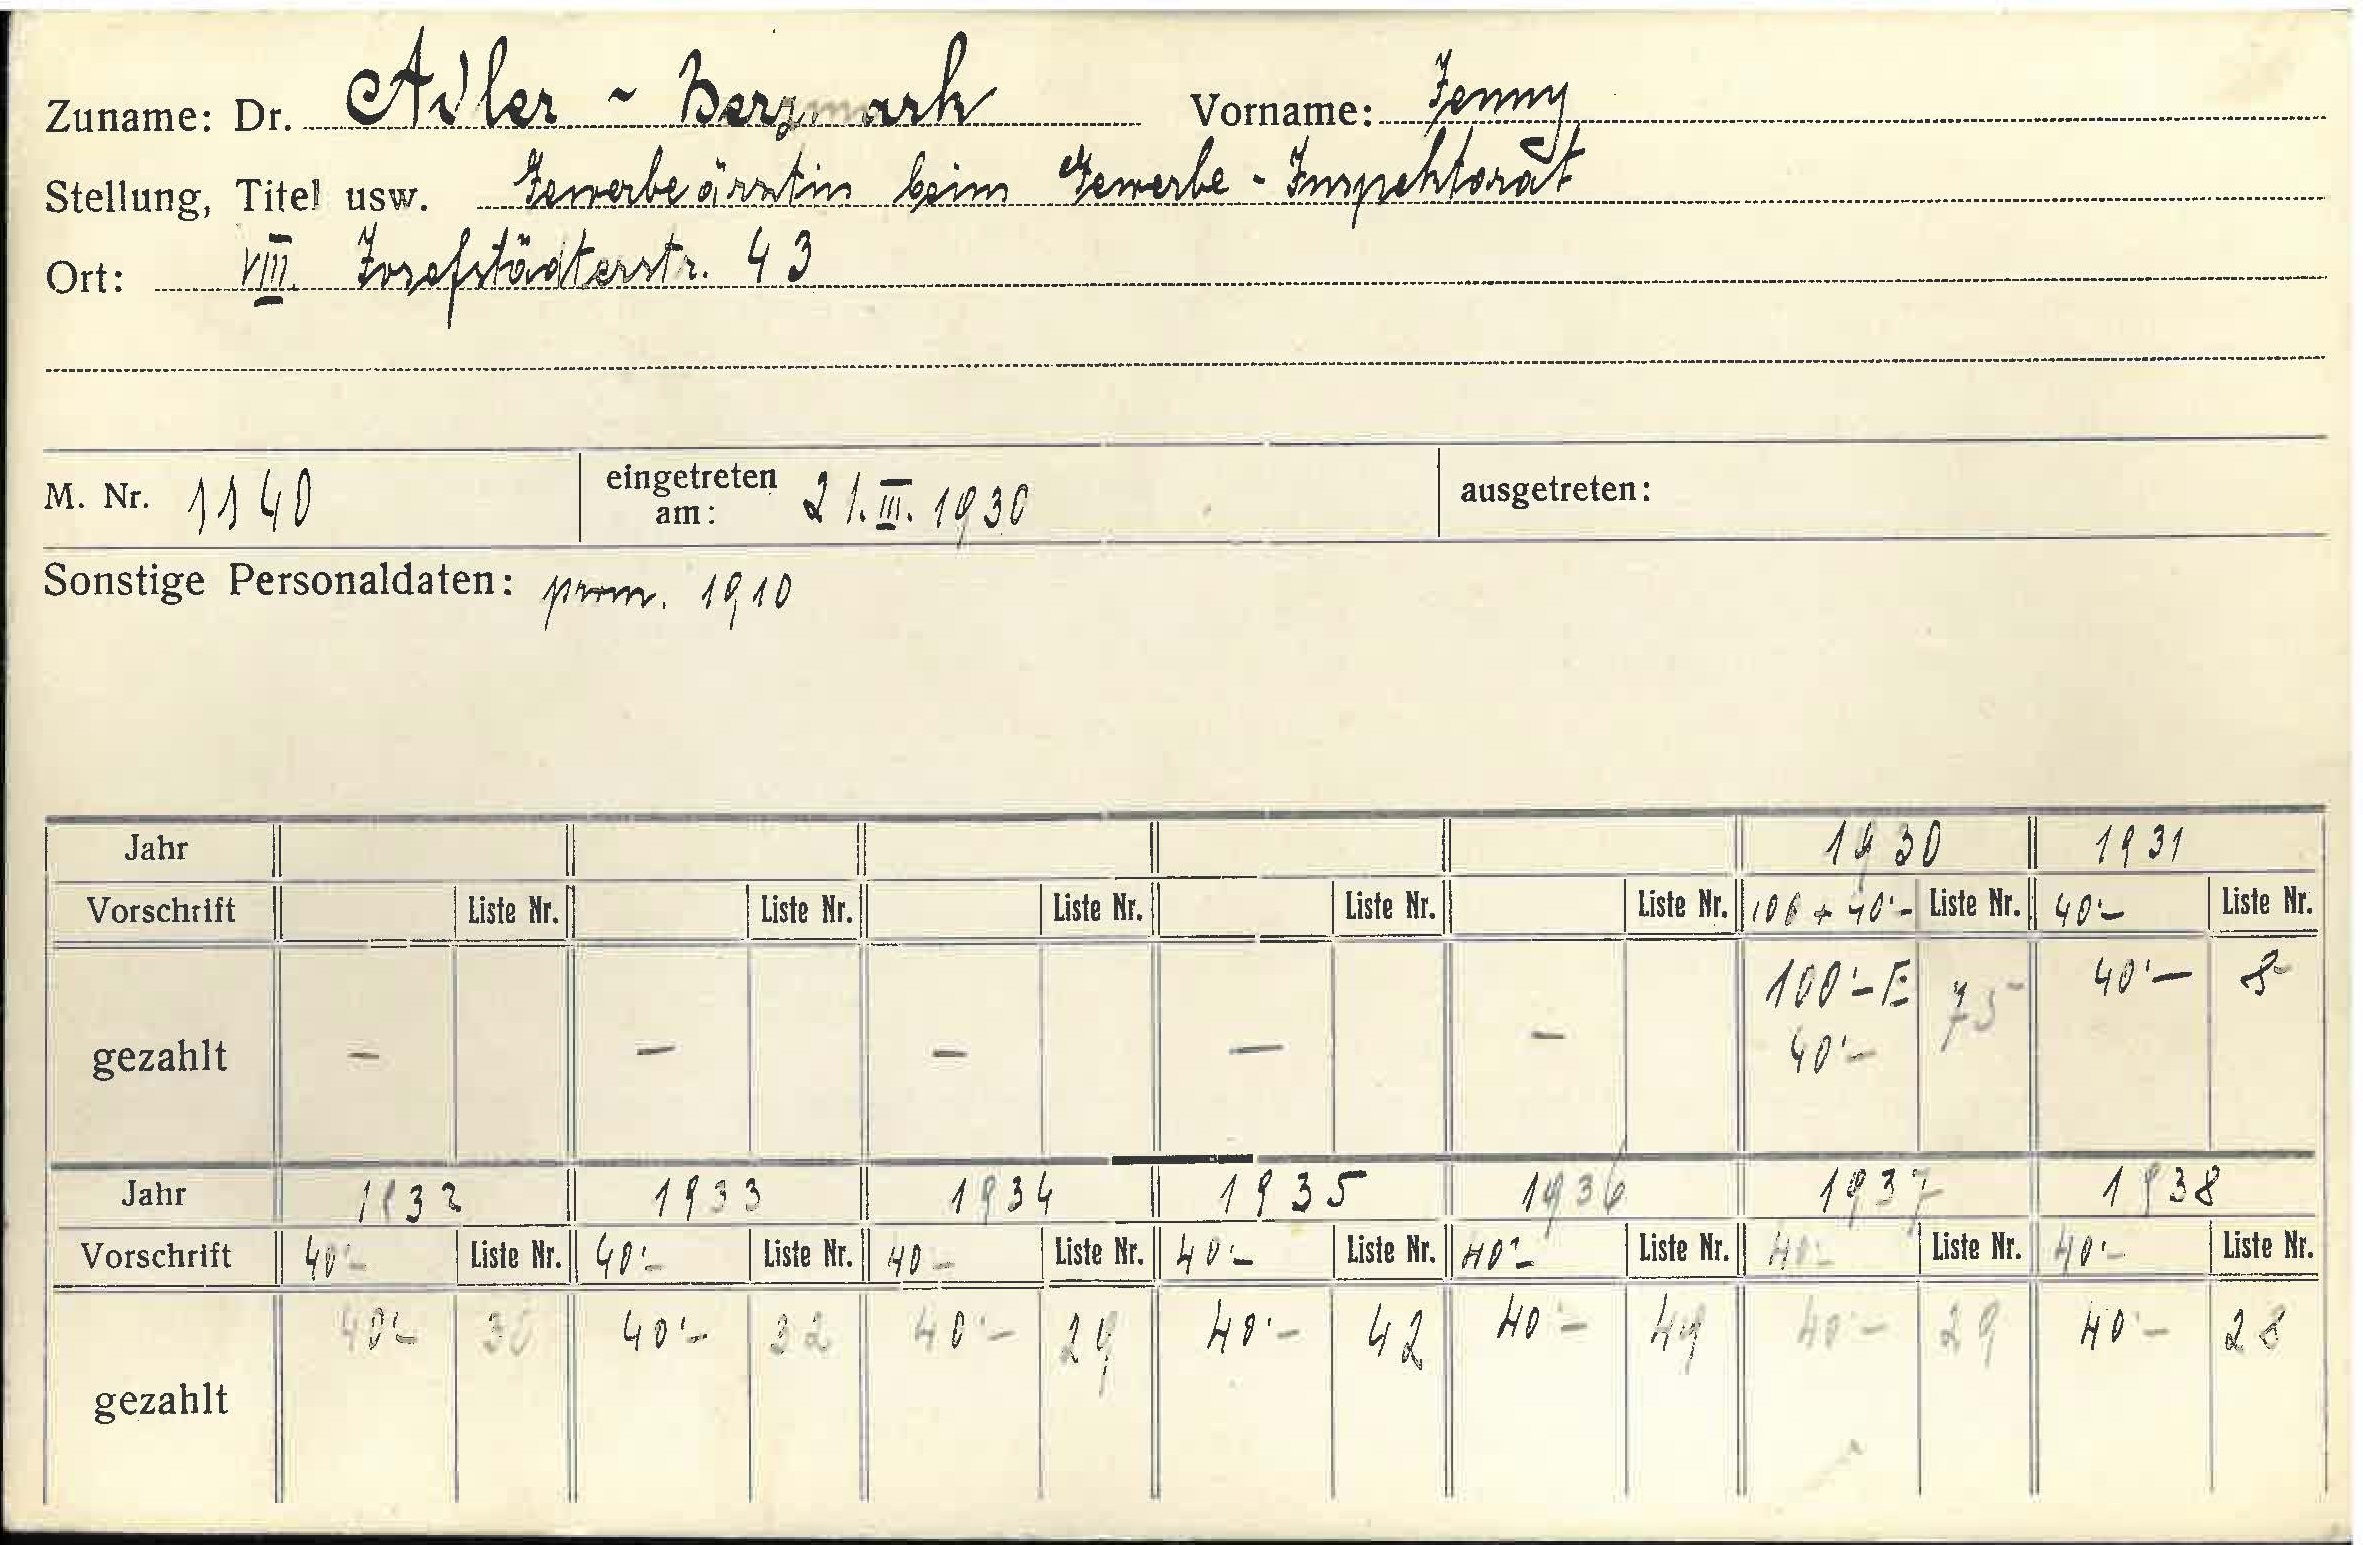 Zuname: Dr. Adler - Herzmark Vorname: Jenny
Stellung, Titel usw. Gewerbeärztin beim Gewerbe-Inspektorat
Ort: VIII. Josefstädterstr. 43
M. Nr. 1140 eingetreten am: 21. III. 1930 ausgetreten:
Sonstige Personaldaten: prom. 1910
Jahr 1930 1931
Vorschrift Liste Nr. Liste Nr. Liste Nr. Liste Nr. Liste Nr. 100 + 40'- Liste Nr. 40'- Liste Nr.
gezahlt - - - - - 100'- E 75 40'- 8
40'-
Jahr 1932 1933 1934 1935 1936 1937 1938
Vorschrift 40'- Liste Nr. 40'- Liste Nr. 40- Liste Nr. 40'- Liste Nr. 40'- Liste Nr. 40'- Liste Nr. 40'- Liste Nr.
gezahlt 40'- 40'- 32 40'- 29 40'- 42 40'- 49 40'- 29 40'- 28